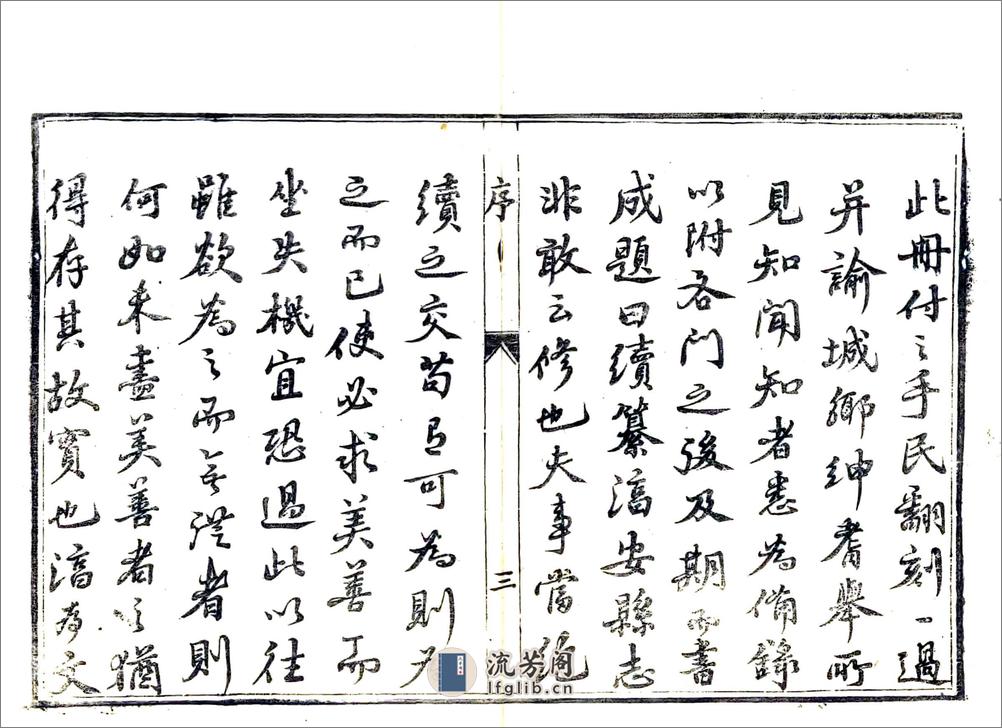 此冊付之手民翻刻一過
并諭城鄉紳耆舉所
見知聞知者悉為備錄
以附各門之後及期而書
成題曰續纂滈安縣志
非敢云修也夫事當絕
序
三
續之交苟有可為則為
之而已使必求美善而
坐失機宜恐過此以往
雖欲為之而無從者則
何如未盡美善者之猶
得存其故實也滈為文
流芳阁
lfglib.cn